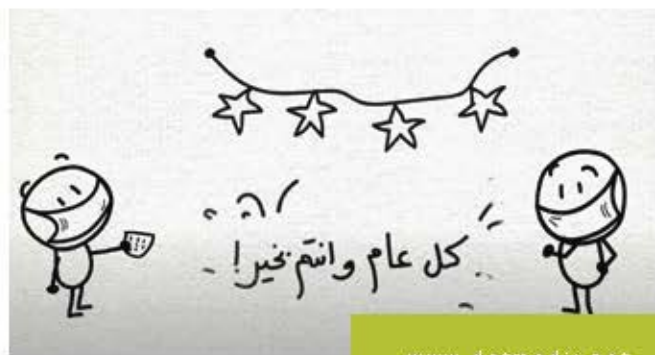 كل عام وانتم بخير!